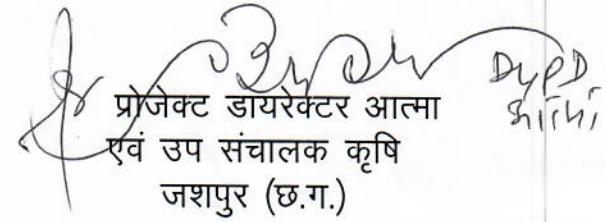 DyPD
आत्मा
प्रोजेक्ट डायरेक्टर आत्मा
एवं उप संचालक कृषि
जशपुर (छ.ग.)